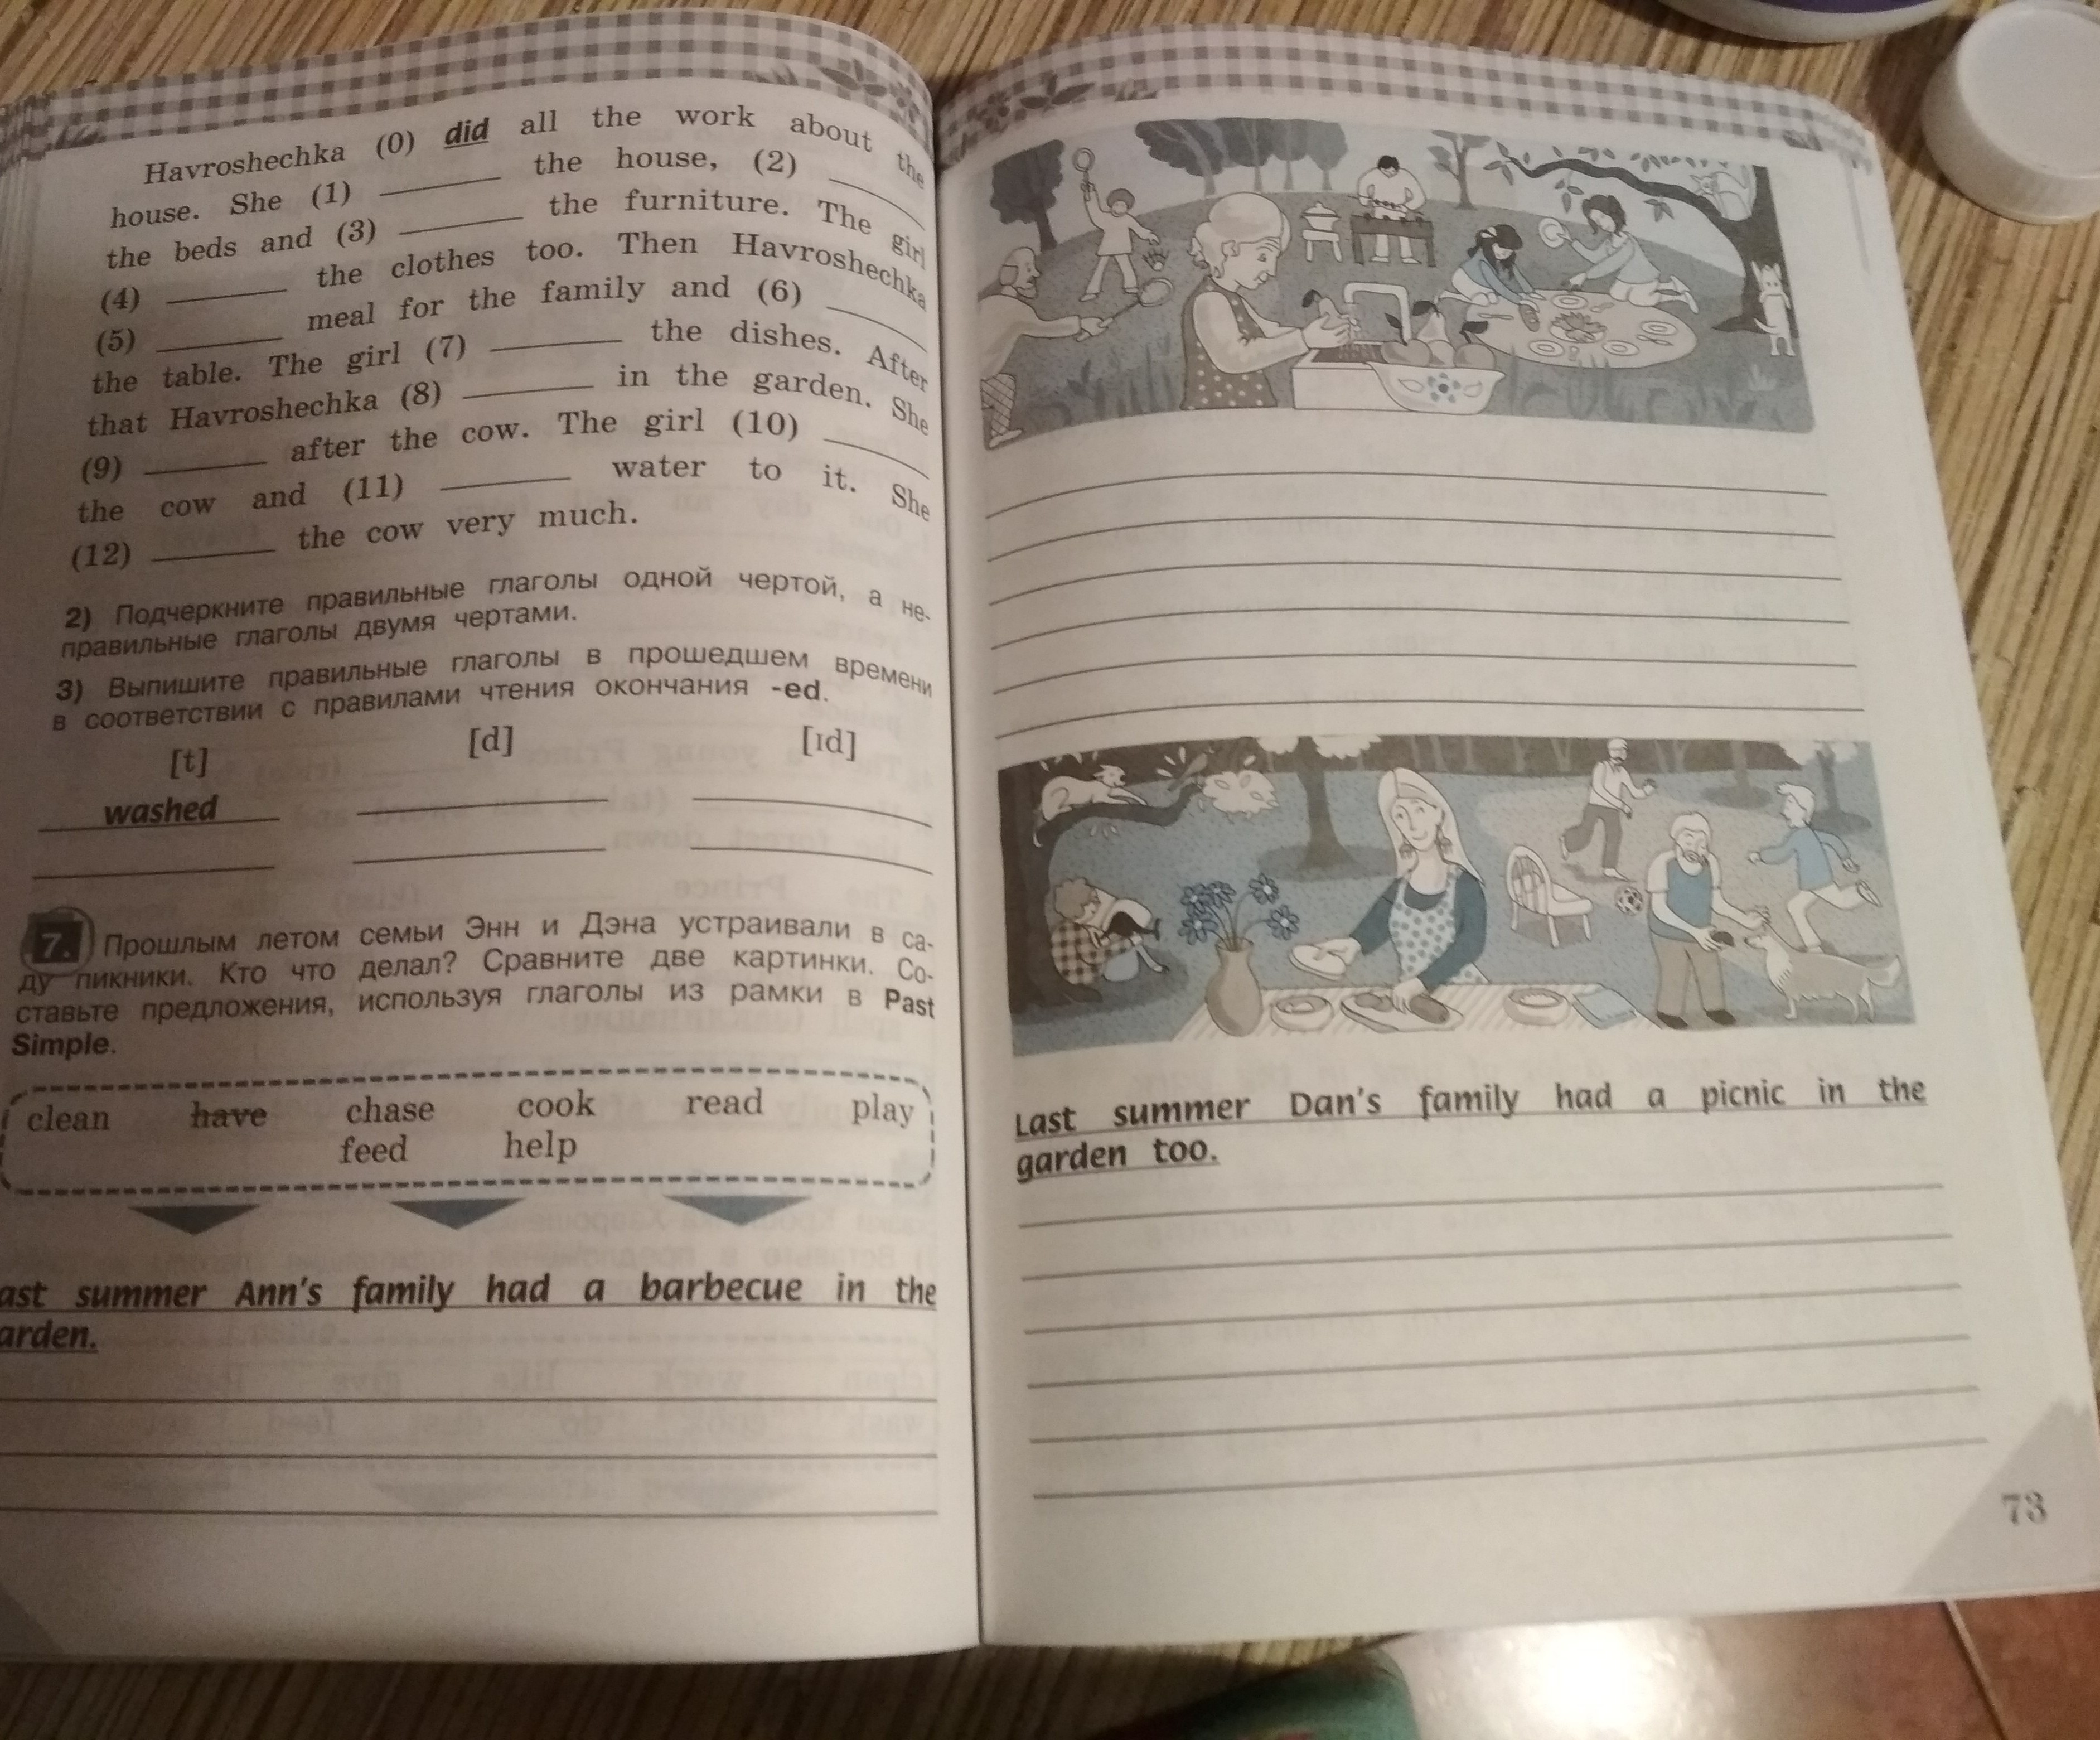 Havroshechka (0) did all the work about the
house. She (1) ______ the house, (2) ______
the beds and (3) ______ the furniture. The girl
(4) ______ the clothes too. Then Havroshechka
(5) ______ meal for the family and (6) ______
the table. The girl (7) ______ the dishes. After
that Havroshechka (8) ______ in the garden. She
(9) ______ after the cow. The girl (10) ______
the cow and (11) ______ water to it. She
(12) ______ the cow very much.
2) Подчеркните правильные глаголы одной чертой, а не-
правильные глаголы двумя чертами.
3) Выпишите правильные глаголы в прошедшем времени
в соответствии с правилами чтения окончания -ed.
[t] [d] [ɪd]
washed
7. Прошлым летом семьи Энн и Дэна устраивали в са-
ду пикники. Кто что делал? Сравните две картинки. Со-
ставьте предложения, используя глаголы из рамки в Past
Simple.
clean have chase cook read play
feed help
ast summer Ann's family had a barbecue in the
arden.
Last summer Dan's family had a picnic in the
garden too.
73